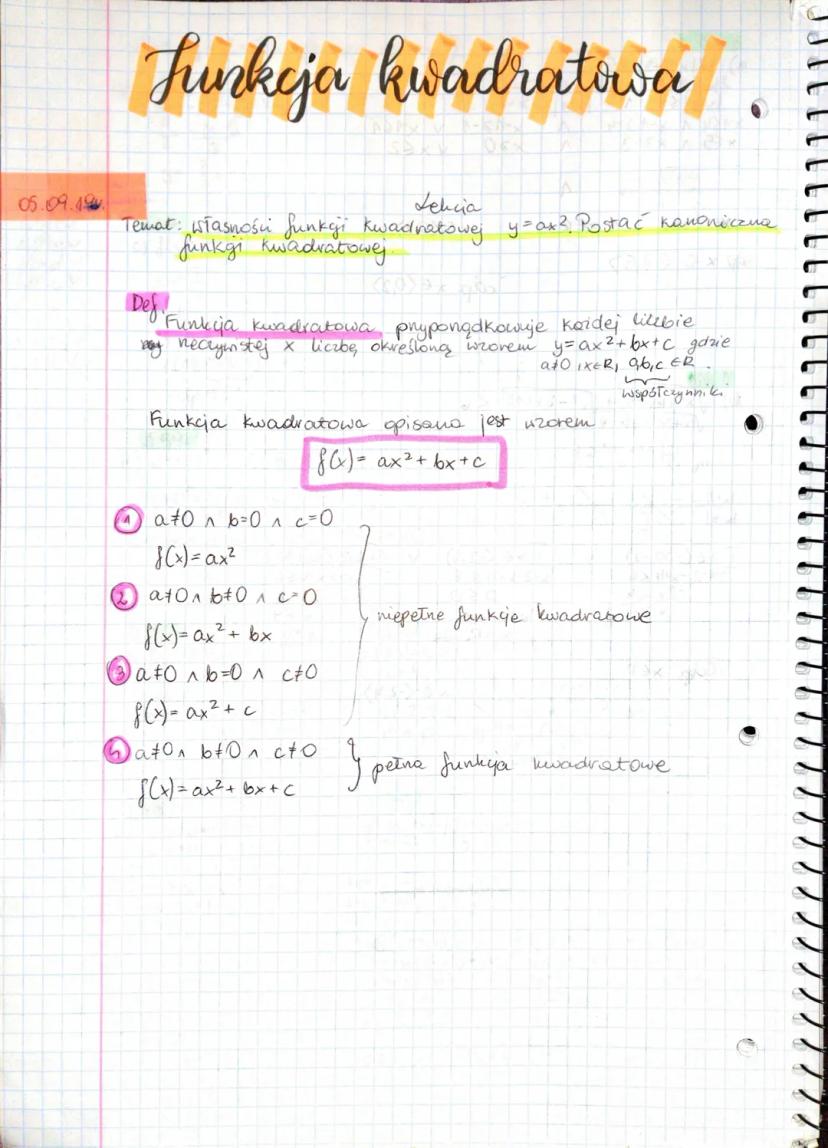 Funkcja kwadratowa
05.09.19r.
Lekcja
Temat: Własności funkcji kwadratowej y=ax². Postać kanoniczna
funkcji kwadratowej.
Def.
Funkcja kwadratowa przyporządkowuje każdej liczbie
rzeczywistej x liczbę określoną wzorem y=ax²+bx+c gdzie
a≠0, x∈R, a,b,c ∈R.
współczynniki
Funkcja kwadratowa opisana jest wzorem
f(x)= ax²+bx+c
1 a≠0 ∧ b=0 ∧ c=0
f(x)=ax²
2 a≠0 ∧ b≠0 ∧ c=0
f(x)=ax²+bx
niepełne funkcje kwadratowe
3 a≠0 ∧ b=0 ∧ c≠0
f(x)=ax²+c
4 a≠0 ∧ b≠0 ∧ c≠0
pełna funkcja kwadratowe
f(x)=ax²+bx+c